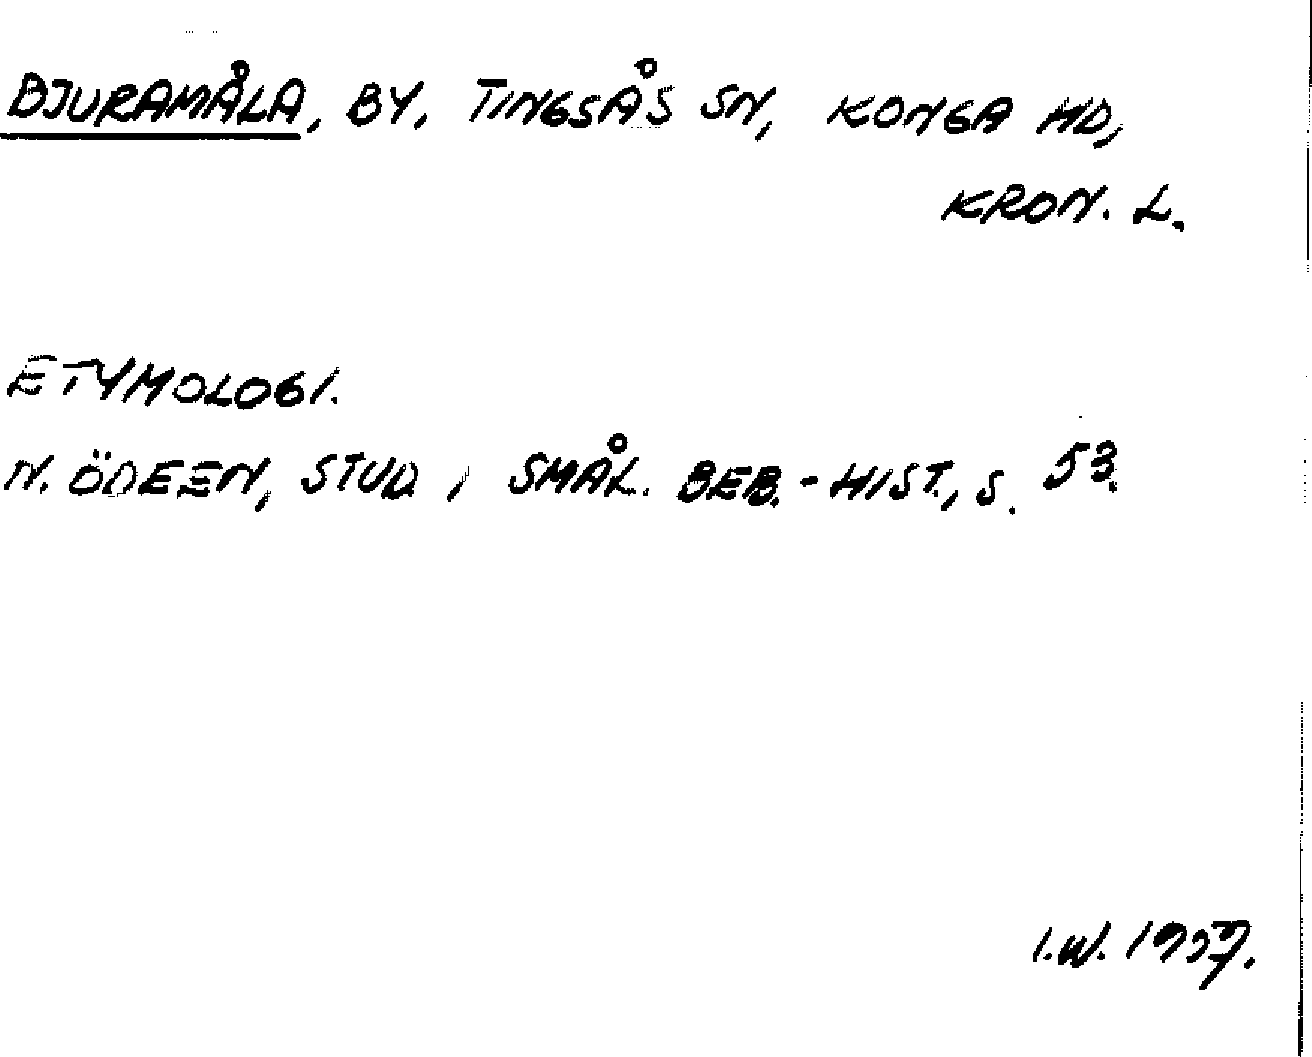 DJURAMÅLA, BY, TINGSÅS SN, KONGA HD,
KRON. L.
ETYMOLOGI.
N. ÖDEEN, STUD I SMÅL. BEB.-HIST., S. 53.
I.W. 1957.